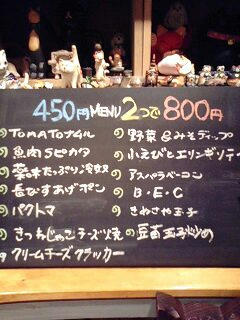 450円 MENU 2つで 800円
TOMATOナムル
魚肉Sピカタ
薬味たっぷり冷奴
長ひすあげポン
パクトマ
きつねじゃこチーズ焼
クリームチーズクラッカー
野菜&みそディップ
小えびとエリンギソテー
アスパラベーコン
B・E・C
きわさや玉子
豆苗玉子炒め